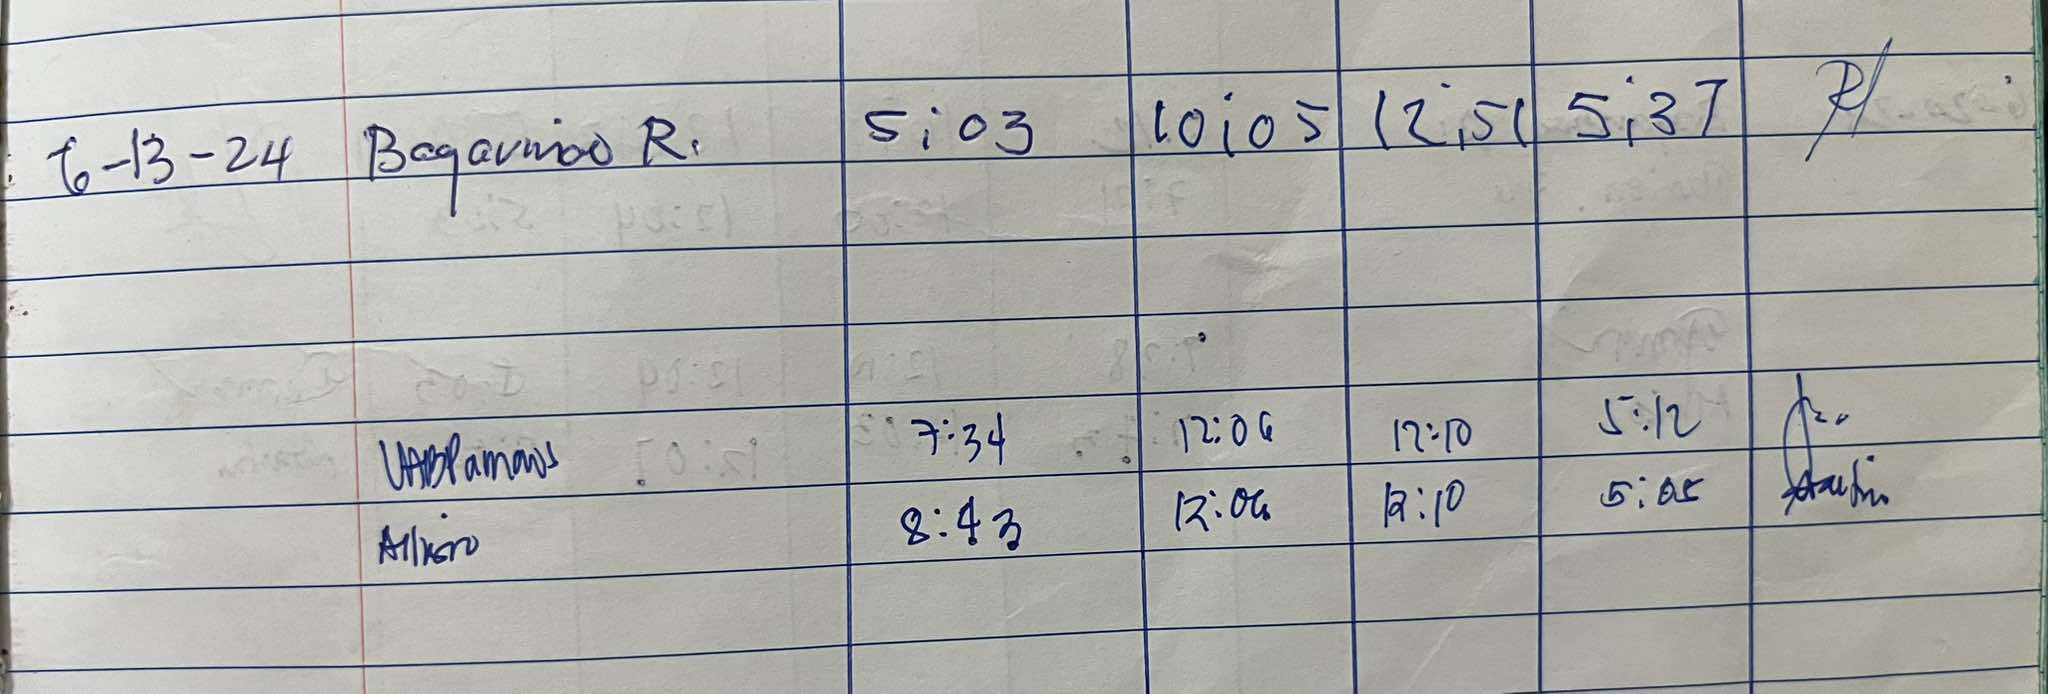 6-13-24 Bagarinao R. 5:03 10:05 12:51 5:37
7:34 12:06 12:10 5:12
8:43 12:06 12:10 5:05